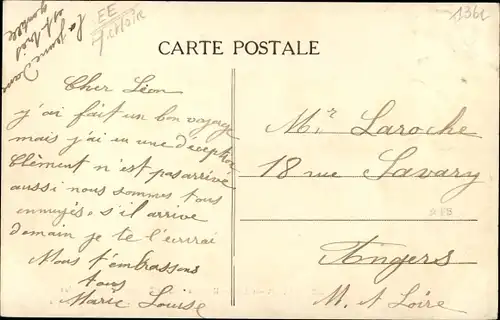 La jeune Dame
est très
gentille
EE
1361
CARTE POSTALE
Cher Léon
j'ai fait un bon voyage
mais j'ai eu une déception
Clèment n'est pas arrivé
aussi nous sommes tous
ennuyés, s'il arrive
demain je te l'écrirai
Nous t'embrassons
tous
Marie Louise
Mr Laroche
18 rue Savary
Angers
M. et Loire